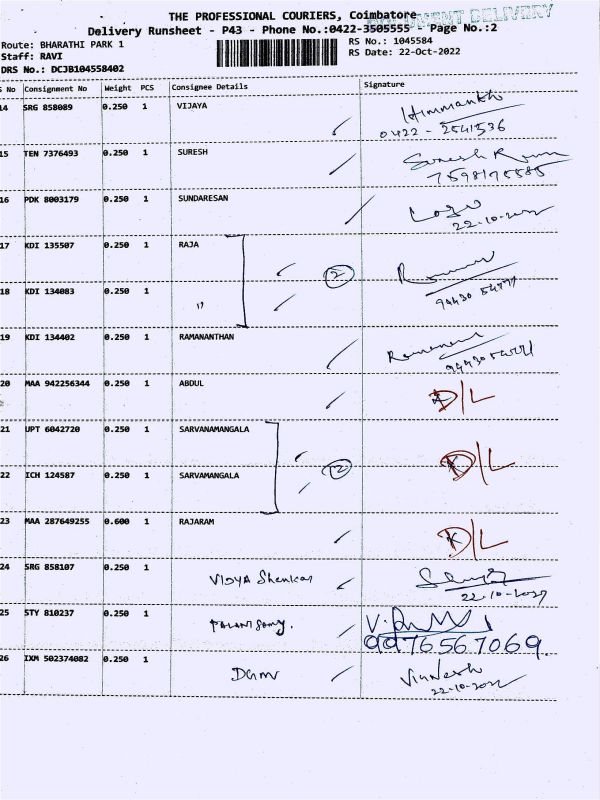 THE PROFESSIONAL COURIERS, Coimbatore
DOCUMENT DELIVERY
Delivery Runsheet - P43 - Phone No.:0422-3505555 - Page No.:2
Route: BHARATHI PARK 1
Staff: RAVI
DRS No.: DCJB104558402
RS No.: 1045584
RS Date: 22-Oct-2022
S No Consignment No Weight PCS Consignee Details Signature
14 SRG 858089 0.250 1 VIJAYA
0422 - 2541536
15 TEN 7376493 0.250 1 SURESH Suresh Kumar
7598175585
16 PDK 8003179 0.250 1 SUNDARESAN
22-10-2022
17 KDI 135507 0.250 1 RAJA
2
18 KDI 134083 0.250 1 "
19 KDI 134402 0.250 1 RAMANANTHAN
20 MAA 942256344 0.250 1 ABDUL D/L
21 UPT 6042720 0.250 1 SARVANAMANGALA D/L
2
22 ICH 124587 0.250 1 SARVAMANGALA
23 MAA 287649255 0.600 1 RAJARAM D/L
24 SRG 858107 0.250 1 VIDYA Shenkar
22-10-2022
25 STY 810237 0.250 1 PALANISAMY.
9976567069.
26 IXM 502374082 0.250 1 Vignesh
22-10-2022